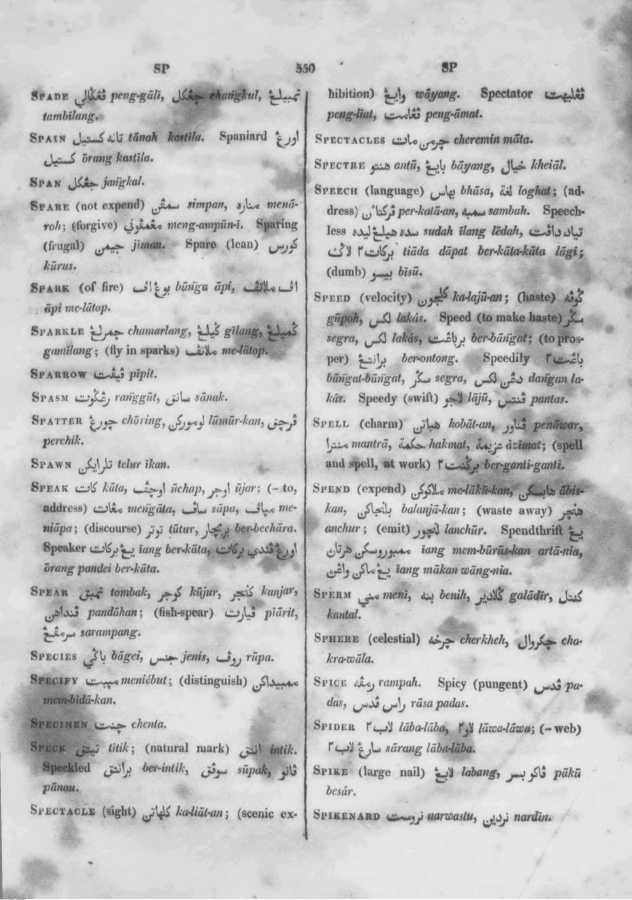 SP
550
SP
SPADE ڤڠݢالي peng-gāli, چڠکل changkul, تمبيلڠ
tambilang.
SPAIN تانه کستيل tānah kastīla. Spaniard اورڠ
کستيل ōrang kastīla.
SPAN جڠکل jangkal.
SPARE (not expend) سمڤن simpan, مناره menā-
roh; (forgive) مڠمڤوني meng-ampūn-i. Sparing
(frugal) جيمن jiman. Spare (lean) کورس
kūrus.
SPARK (of fire) بوڠ اڤ būnga āpi, اڤ ملاتڤ
āpi me-lātop.
SPARKLE چمرلڠ chamarlang, ݢيلڠ gīlang, ݢميلڠ
gamīlang; (fly in sparks) ملاتڤ me-lātop.
SPARROW ڤيڤت pīpit.
SPASM رڠݢوت ranggūt, سانق sānak.
SPATTER چورڠ chōring, لومورکن lūmūr-kan, ڤرچق
perchik.
SPAWN تلر ايکن telur īkan.
SPEAK کات kāta, اوچڤ ūchap, اوجر ūjar; (– to,
address) مڠات mengāta, ساڤ sāpa, مياڤ me-
niāpa; (discourse) توتر tūtur, برچار ber-bechāra.
Speaker يڠ برکات iang ber-kāta, اورڠ ڤندي برکات
ōrang pandei ber-kāta.
SPEAR تمبق tombak, کوجر kūjur, کنجر kanjar,
ڤنداهن pandāhan; (fish-spear) ڤيارت piārit,
سرمڤڠ sarampang.
SPECIES باݢي bāgei, جنس jenis, روڤ rūpa.
SPECIFY مڽبت meniébut; (distinguish) ممبيداکن
mem-bidā-kan.
SPECIMEN چنت chenta.
SPECK تيتق titik; (natural mark) انتق intik.
Speckled برانتق ber-intik, سوڤق sūpak, ڤانو
pānau.
SPECTACLE (sight) کلهاتن ka-liāt-an; (scenic ex-
hibition) وايڠ wāyang. Spectator ڤڠليهت
peng-liat, ڤڠامت peng-āmat.
SPECTACLES چرمن مات cheremin māta.
SPECTRE هنتو antū, بايڠ bāyang, خيال kheiāl.
SPEECH (language) بهاس bhāsa, لغة loghat; (ad-
dress) ڤرکتاءن per-katā-an, سمبه sambah. Speech-
less سده هيلڠ ليده sudah īlang lēdah, تياد داڤت
برکات٢ لاݢ tiāda dāpat ber-kāta-kāta lāgi;
(dumb) بيسو bīsū.
SPEED (velocity) کلاجون ka-lajū-an; (haste) ݢوڤه
gūpoh, لکس lakás. Speed (to make haste) سݢر
segra, لکس lakás, برباڠت ber-bāngat; (to pros-
per) برانتڠ ber-ontong. Speedily باڠت٢
bāngat-bāngat, سݢر segra, دڠن لکس dangan la-
kás. Speedy (swift) لاجو lājū, ڤنتس pantas.
SPELL (charm) هباتن hobāt-an, ڤناور penāwar,
منترا mantrā, حکمة hakmat, عزيمة āzimat; (spell
and spell, at work) برݢنت٢ ber-ganti-ganti.
SPEND (expend) ملاکوکن me-lākū-kan, هابسکن ābis-
kan, بلنجاکن balanjā-kan; (waste away) هنچر
anchur; (emit) لنچور lanchūr. Spendthrift يڠ
ممبوروسکن هرتان iang mem-būrūs-kan artā-nia,
يڠ ماکن واڠن iang mākan wāng-nia.
SPERM مني meni, بنه benih, ݢلادير galādir, کنتل
kantal.
SPHERE (celestial) چرخه cherkheh, چکروال cha-
kra-wāla.
SPICE رمڤه rampah. Spicy (pungent) ڤدس pa-
das, راس ڤدس rāsa padas.
SPIDER لاب٢ lāba-lāba, لاو٢ lāwa-lāwa; (– web)
سارڠ لاب٢ sārang lāba-lāba.
SPIKE (large nail) لابڠ labang, ڤاکو بسر pākū
besár.
SPIKENARD نروست narwastu, نردين nardīn.